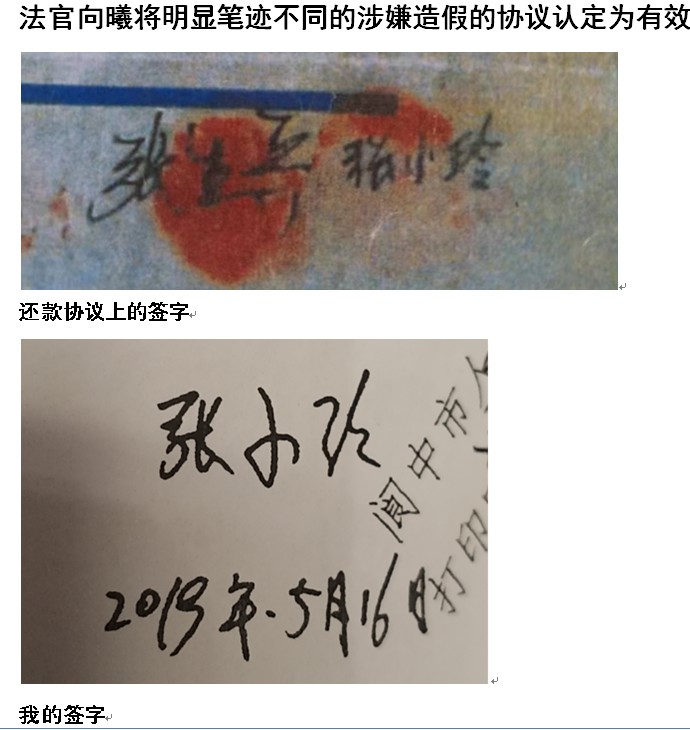 法官向曦将明显笔迹不同的涉嫌造假的协议认定为有效
张小玲
还款协议上的签字
张小玲
阆中市
打印
2019年.5月16日
我的签字